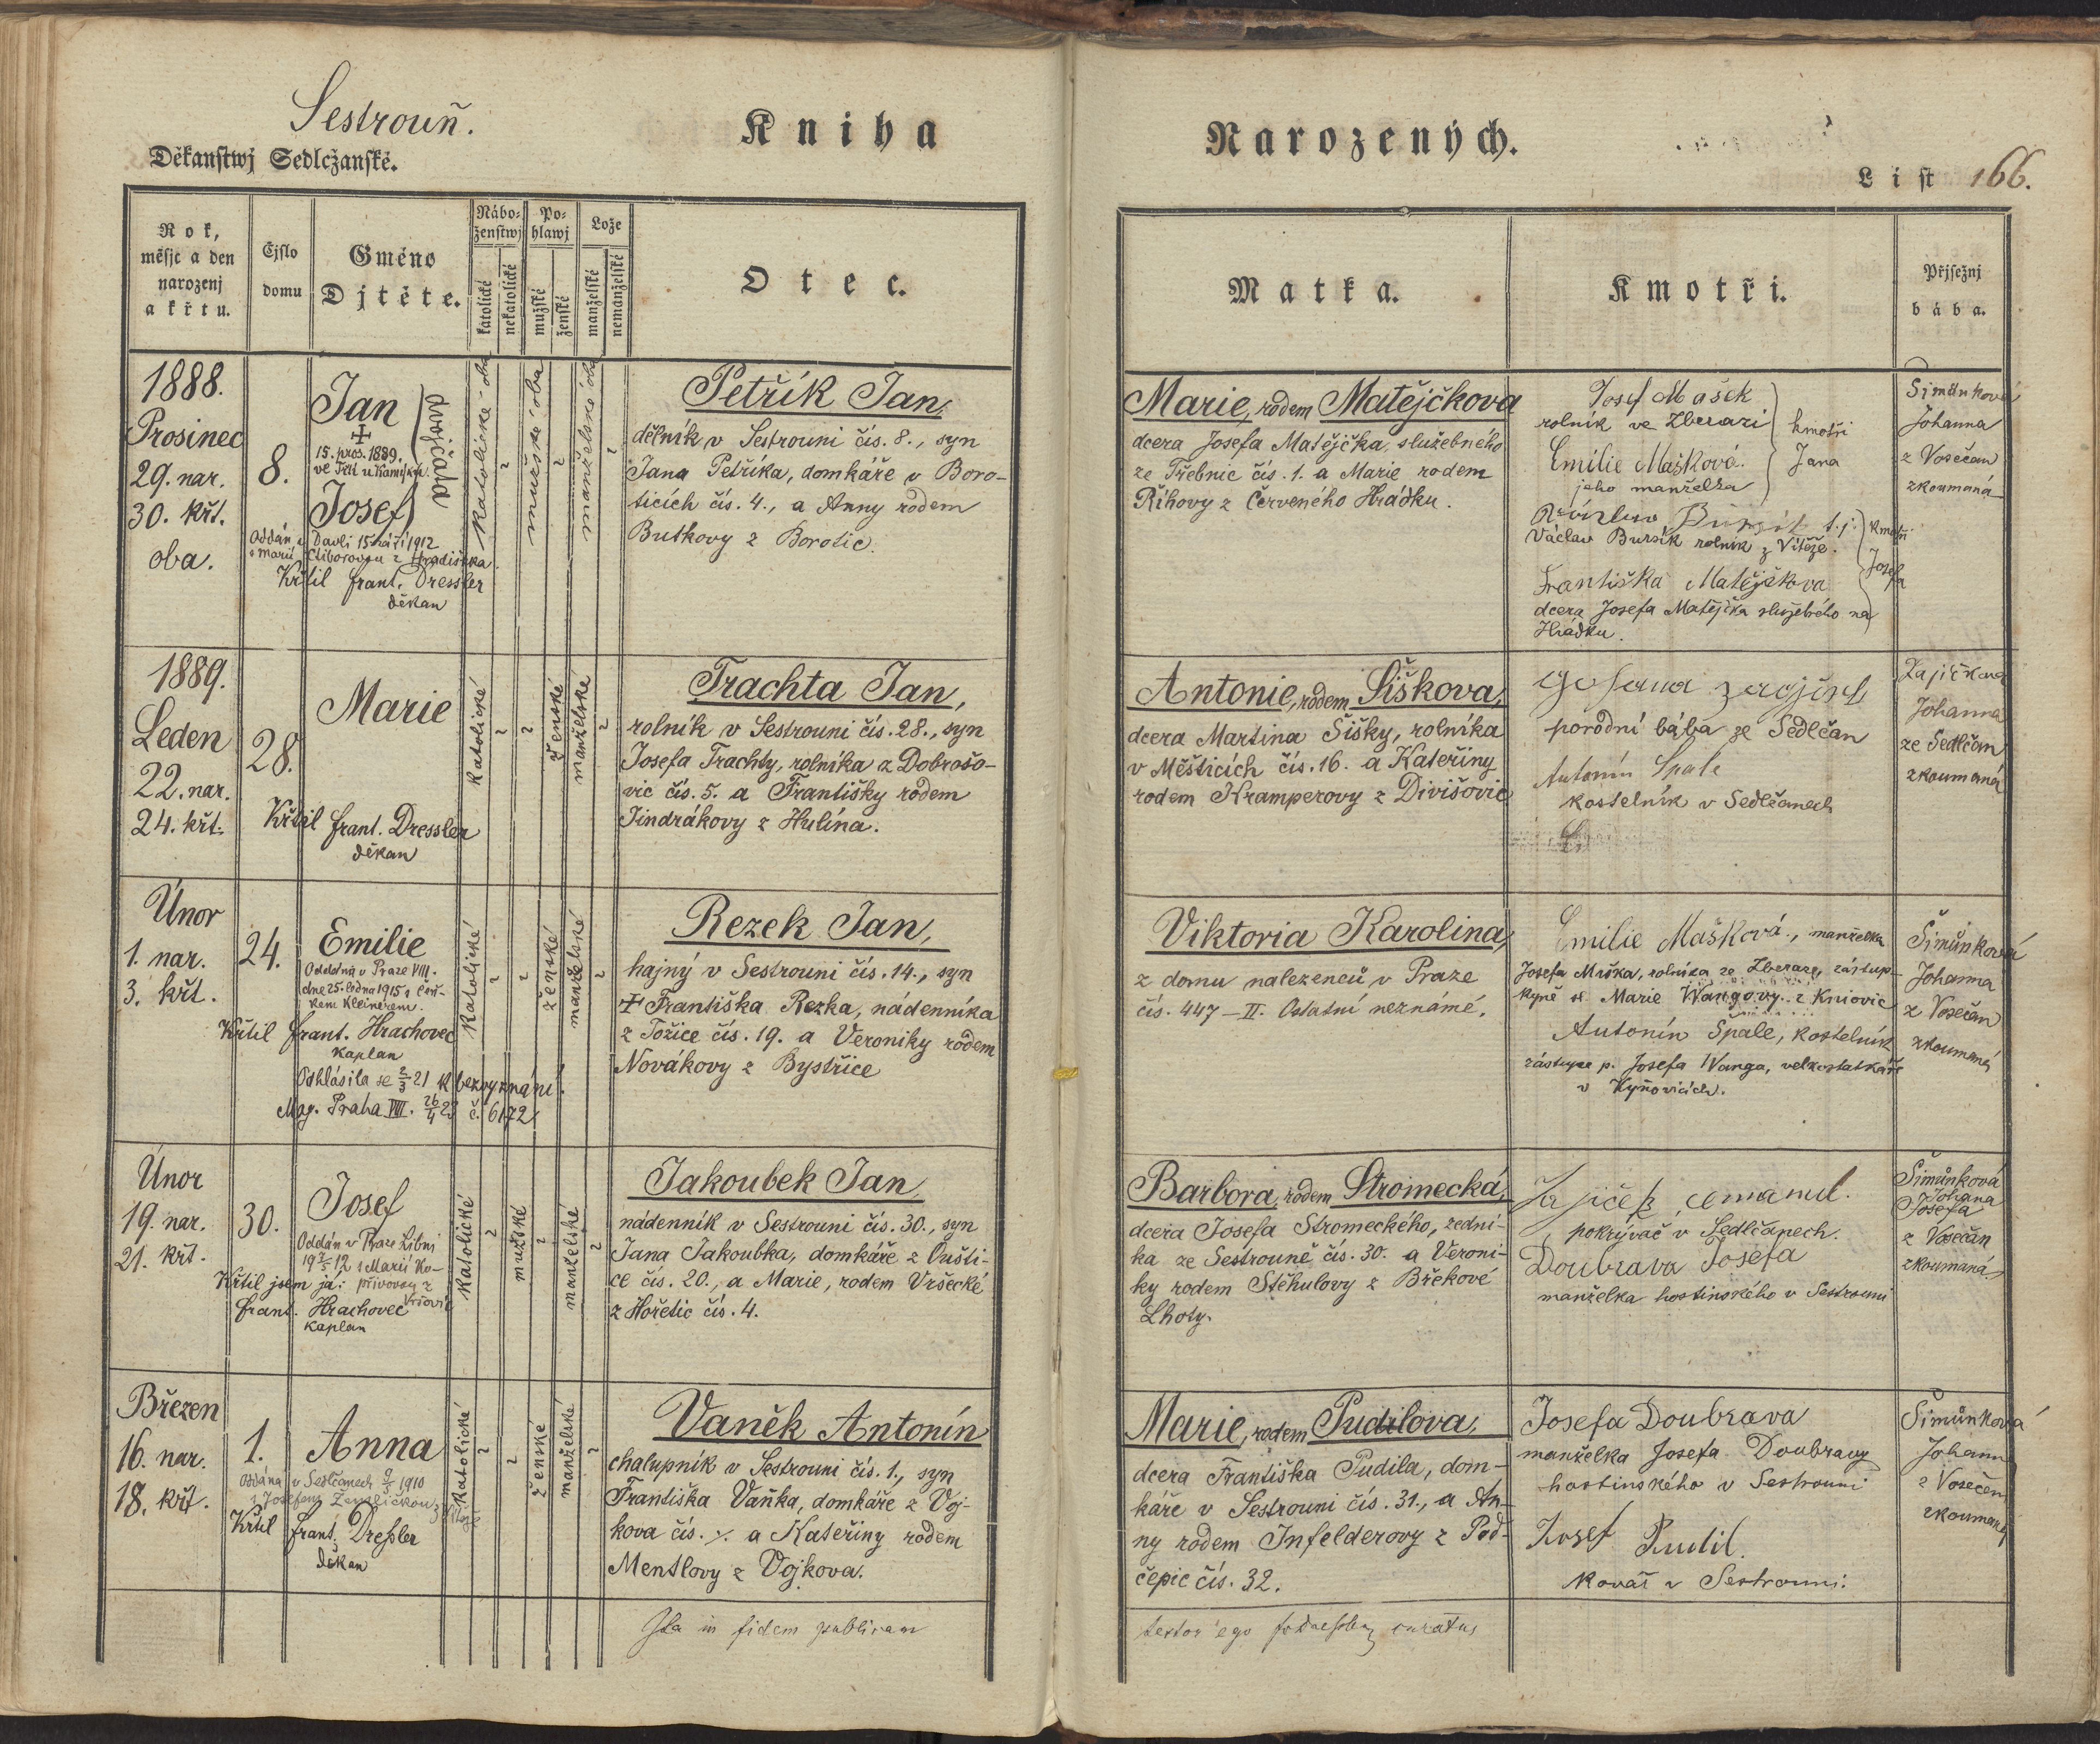 Sestrouň.
Děkanstwj Sedlcžanské.
Kniha
Narozených.
List 166.
Rok,
měsjc a den
narozenj
a křtu.
Čjslo
domu
Gméno
Djtěte.
Nábo-
ženstwj
katolické
nekatolické
Po-
hlawj
mužské
ženské
Lože
manželské
nemanželské
Otec.
Matka.
Kmotři.
Přjsežnj
bába.
1888.
Prosinec
29. nar.
30. křt.
oba.
8.
Jan
15. pros. 1889.
dvojčata
Josef
Oddán v Davli 15 září 1912
Křtil frant. Dressler
děkan
Katolické - oba
mužské oba
manželské oba
Petřík Jan,
dělník v Sestrouni čís. 8., syn
Jana Petříka, domkáře v Boro-
ticích čís. 4., a Anny rodem
Butkovy z Borotic.
Marie, rodem Matějčkova
dcera Josefa Matějčka, služebného
ze Třebnic čís. 1. a Marie rodem
Říhovy z Červeného Hrádku.
Josef Mašek
rolník ve Zberazi
Emilie Mašková.
jeho manželka
kmotři
Jana
Václav Bursík rolník z Vítěže.
Františka Matějčkova
dcera Josefa Matějčka služebného na
Hrádku.
kmotři
Josefa
Šimůnková
Johanna
z Vosečan
zkoumaná
1889.
Leden
22. nar.
24. křt.
28.
Marie
Křtil frant. Dressler
děkan
Katolické
ženské
manželské
Trachta Jan,
rolník v Sestrouni čís. 28., syn
Josefa Trachty, rolníka z Dobrošo-
vic čís. 5. a Františky rodem
Jindrákovy z Hulína.
Antonie, rodem Šiškova,
dcera Martina Šišky, rolníka
v Měšticích čís. 16. a Kateřiny
rodem Hramperovy z Divišovic
porodní bába ze Sedlčan
Antonín Špale
kostelník v Sedlčanech
Zajíčkova
Johanna
ze Sedlčan
zkoumaná
Únor
1. nar.
3. křt.
24.
Emilie
Oddána v Praze VIII.
dne 25. ledna 1915 s Čeň-
kem Kleinerem.
Křtil frant. Hrachovec
kaplan
Odhlásila se 2/3 21 k bezvyznání.
Mag. Praha VIII. 26/4 23 č. 6172
Katolické
ženské
manželské
Rezek Jan,
hajný v Sestrouni čís. 14., syn
‡ Františka Rezka, nádenníka
z Tožice čís. 19. a Veroniky rodem
Novákovy z Bystřice
Viktoria Karolina,
z domu nalezenců v Praze
čís. 447 – II. Ostatní neznámé.
Emilie Mašková., manželka
Josefa Maška, rolníka ze Zberaze, zástup-
kyně sl. Marie Wangovy z Kniovic
Antonín Špale, kostelník
zástupce p. Josefa Wanga, velkostatkáře
v Kyňovicích.
Šimůnková
Johanna
z Vosečan
zkoumaná
Únor
19. nar.
21. křt.
30.
Josef
Oddán v Praze Libni
Křtil jsem já:
frant. Hrachovec
kaplan
Katolické
mužské
manželské
Jakoubek Jan,
nádenník v Sestrouni čís. 30., syn
Jana Jakoubka, domkáře z Oušti-
ce čís. 20., a Marie, rodem Vršecké
z Hořetic čís. 4.
Barbora, rodem Stromecká,
dcera Josefa Stromeckého, zední-
ka ze Sestrouně čís. 30. a Veroni-
ky rodem Stěhulovy z Břekové
Lhoty.
Zajíček Emanuel.
pokrývač v Sedlčanech.
Doubrava Josefa
manželka hostinského v Sestrouni
Šimůnková
Johana
Josefa
z Vosečan
zkoumaná
Březen
16. nar.
18. křt.
1.
Anna
Oddána v Sedlčanech 1910
Křtil frant. Dreßler
děkan
Katolické
ženské
manželské
Vaněk Antonín
chalupník v Sestrouni čís. 1., syn
Františka Vaňka, domkáře z Voj-
kova čís. ./. a Kateřiny rodem
Mentlovy z Vojkova.
Marie, rodem Pudilova,
dcera Františka Pudila, dom-
káře v Sestrouni čís. 31., a An-
ny rodem Infelderovy z Pod-
čepic čís. 32.
Josefa Doubrava
manželka Josefa Doubravy
hostinského v Sestrouni
Josef Pudil.
Kovář v Sestrouni.
Šimůnková
Johanna
z Vosečan
zkoumaná
Ita in fidem publicam
testor ego curatus